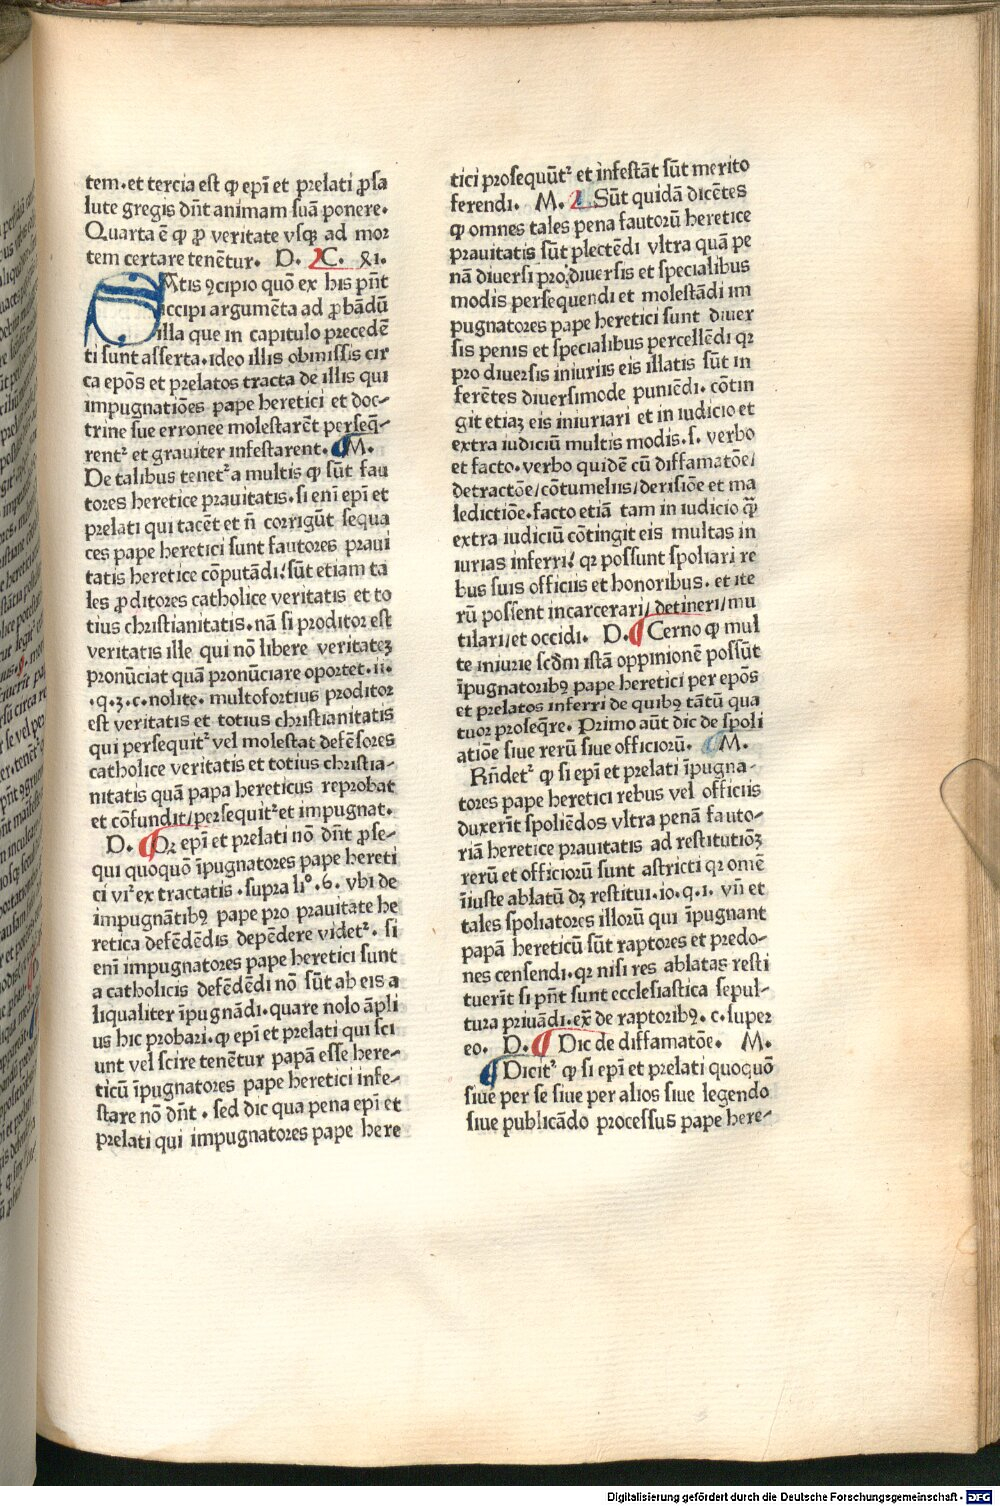 tem.et tercia est ꝙ epī et prelati ꝓsa
lute gregis dn̄t animam suā ponere.
Quarta ē ꝙ ꝓ veritate vsqꝫ ad mor
tem certare tenētur. D. C. xi.
SAtis ꝯcipio quō ex his pn̄t
accipi argumēta ad ꝓbādū
illa que in capitulo precedē
ti sunt asserta.ideo illis obmissis cir
ca epōs et prelatos tracta de illis qui
impugnatiōes pape heretici et doc-
trine sue erronee molestarēt perseq̄-
rentᷣ et grauiter infestarent. M.
De talibus tenetᷣ a multis ꝙ sūt fau
tores heretice prauitatis.si enī epī et
prelati qui tacēt et n̄ corrigūt sequa
ces pape heretici sunt fautores praui
tatis heretice cōputādi:sūt etiam ta
les ꝓditores catholice veritatis et to
tius christianitatis.nā si proditor est
veritatis ille qui nō libere veritateꝫ
pronūciat quā pronūciare oportet.ii.
.q.3.c.nolite.multofortius proditor
est veritatis et totius christianitatis
qui persequitᷣ vel molestat defēsores
catholice veritatis et totius christia-
nitatis quā papa hereticus reprobat
et cōfundit/persequitᷣ et impugnat.
D. Qꝛ epī et prelati nō dn̄t ꝓse-
qui quoquō īpugnatores pape hereti
ci viꝛ ex tractatis.supra li°.6. vbi de
impugnātibꝯ pape pro prauitate he
retica defēdēdis depēdere videtᷣ. si
enī impugnatores pape heretici sunt
a catholicis defēdēdi nō sūt ab eis a
liqualiter īpugnādi.quare nolo āpli
us hic probari.ꝙ epī et prelati qui sci
unt vel scire tenētur papā esse here-
ticū īpugnatores pape heretici infe-
stare nō dn̄t. sed dic qua pena epī et
prelati qui impugnatores pape here
tici prosequūtᷣ et infestāt sūt merito
ferendi. M. Sūt quidā dicētes
ꝙ omnes tales pena fautorū heretice
prauitatis sūt plectēdi vltra quā pe
nā diuersi pro diuersis et specialibus
modis persequendi et molestādi im
pugnatores pape heretici sunt diuer
sis penis et specialibus percellēdi qꝛ
pro diuersis iniuriis eis illatis sūt in
ferētes diuersimode puniēdi.cōtin
git etiaꝫ eis iniuriari et in iudicio et
extra iudiciū multis modis.s. verbo
et facto.verbo quidē cū diffamatōe/
detractōe/cōtumeliis/derisiōe et ma
ledictiōe.facto etiā tam in iudicio ꝙ̄
extra iudiciū cōtingit eis multas in
iurias inferri: qꝛ possunt spoliari re
bus suis officiis et honoribus. et ite
rū possent incarcerari/detineri/mu
tilari/et occidi. D. Cerno ꝙ mul
te iniurie scd̄m istā oppinionē possūt
īpugnatoribꝯ pape heretici per epōs
et prelatos inferri de quibꝯ tātū qua
tuor proseq̄re. Primo aūt dic de spoli
atiōe siue rerū siue officiorū. M.
Rn̄detᷣ ꝙ si epī et prelati īpugna-
tores pape heretici rebus vel officiis
duxerīt spoliēdos vltra penā fauto-
riā heretice prauitatis ad restitutiōꝫ
rerū et officiorū sunt astricti qꝛ omē
īiuste ablatū dꝫ restitui.io.q.1. vn̄ et
tales spoliatores illorū qui īpugnant
papā hereticū sūt raptores et predo-
nes censendi.qꝛ nisi res ablatas resti
tuerīt si pn̄t sunt ecclesiastica sepul-
tura priuādi.ex̄ de raptoribꝯ. c.super
eo. D. Dic de diffamatōe. M.
Dicitᷣ ꝙ si epī et prelati quoquō
siue per se siue per alios siue legendo
siue publicādo processus pape here-
Digitalisierung gefördert durch die Deutsche Forschungsgemeinschaft - DFG